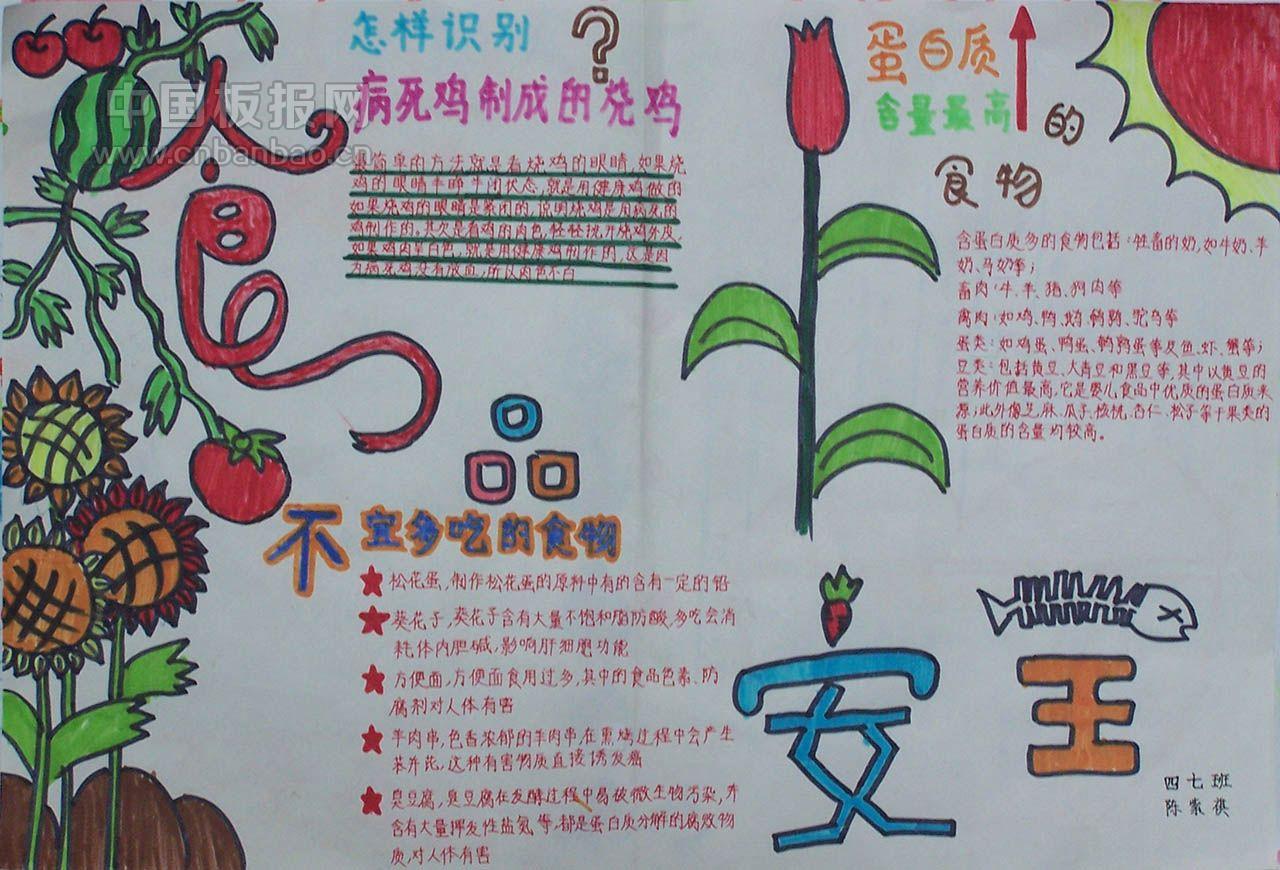 中国板报网
www.cnbanbao.cn
怎样识别?
病死鸡制成的烧鸡
最简单的方法就是看烧鸡的眼睛,如果烧
鸡的眼睛半睁半闭状态,就是用健康鸡做的
如果烧鸡的眼睛是紧闭的,说明烧鸡是用病死的
鸡制作的。其次是看鸡的肉色,轻轻挑开烧鸡外皮,
如果鸡肉呈白色,就是用健康鸡制作的,这是因
为病死鸡没有放血,所以肉色不白
食
品
安
全
蛋白质
含量最高
的
食物
含蛋白质多的食物包括:牲畜的奶,如牛奶、羊
奶、马奶等;
畜肉:牛、羊、猪、狗肉等
禽肉:如鸡、鸭、鹅、鹌鹑、鸵鸟等
蛋类:如鸡蛋、鸭蛋、鹌鹑蛋等及鱼、虾、蟹等;
豆类:包括黄豆、大青豆和黑豆等,其中以黄豆的
营养价值最高,它是婴儿食品中优质的蛋白质来
源;此外像芝麻、瓜子、核桃、杏仁、松子等干果类的
蛋白质的含量均较高。
不宜多吃的食物
松花蛋,制作松花蛋的原料中有的含有一定的铅
葵花子,葵花子含有大量不饱和脂肪酸,多吃会消
耗体内胆碱,影响肝细胞功能
方便面,方便面食用过多,其中的食品色素、防
腐剂对人体有害
羊肉串,色香浓郁的羊肉串,在熏烤过程中会产生
苯并芘,这种有害物质直接诱发癌
臭豆腐,臭豆腐在发酵过程中易被微生物污染,并
含有大量挥发性盐氨等,都是蛋白质分解的腐败物
质,对人体有害
四七班
陈家祺